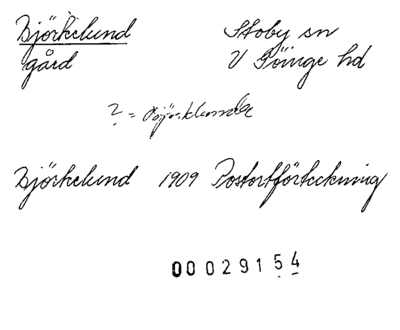 Björkelund Stoby sn
gård V Göinge hd
? = Björklunda
Björkelund 1909 Postortförteckning
00 029154